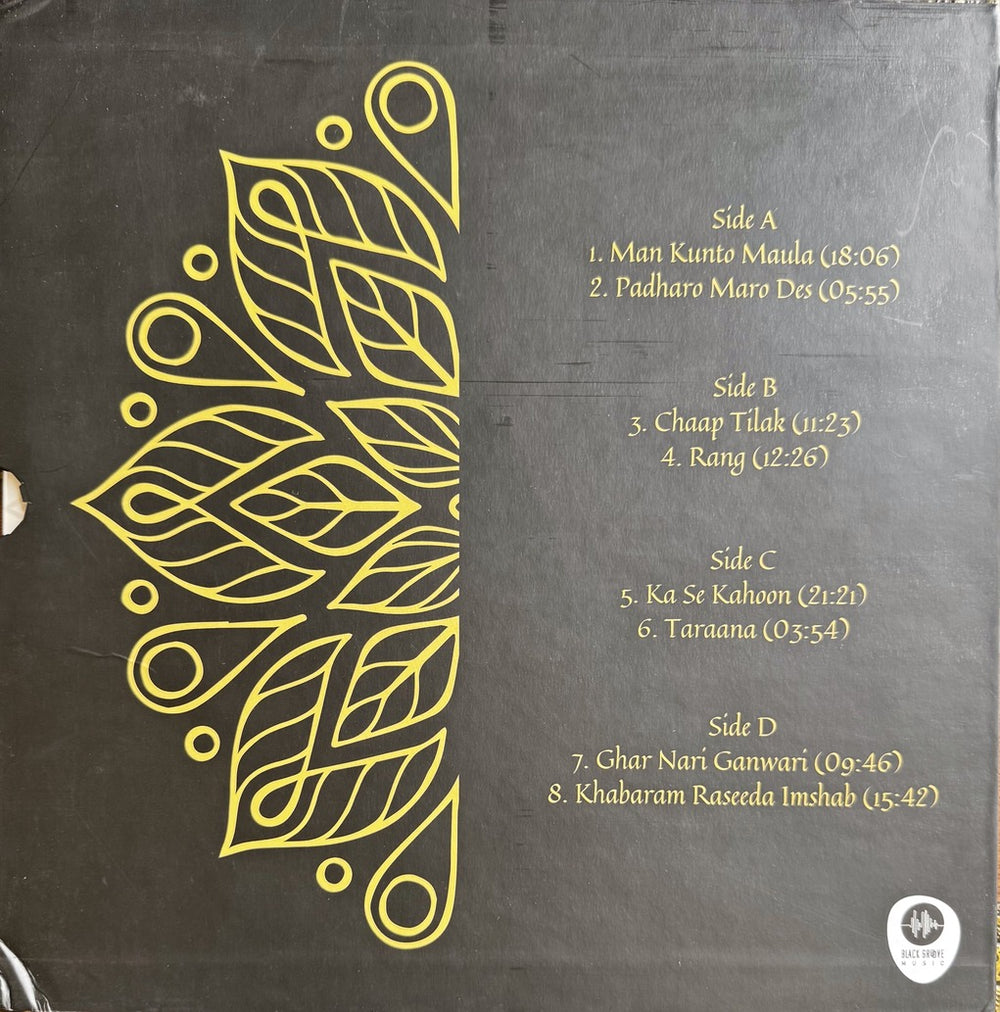 Side A
1. Man Kunto Maula (18:06)
2. Padharo Maro Des (05:55)
Side B
3. Chaap Tilak (11:23)
4. Rang (12:26)
Side C
5. Ka Se Kahoon (21:21)
6. Taraana (03:54)
Side D
7. Ghar Nari Ganwari (09:46)
8. Khabaram Raseeda Imshab (15:42)
BLACK GROOVE
MUSIC